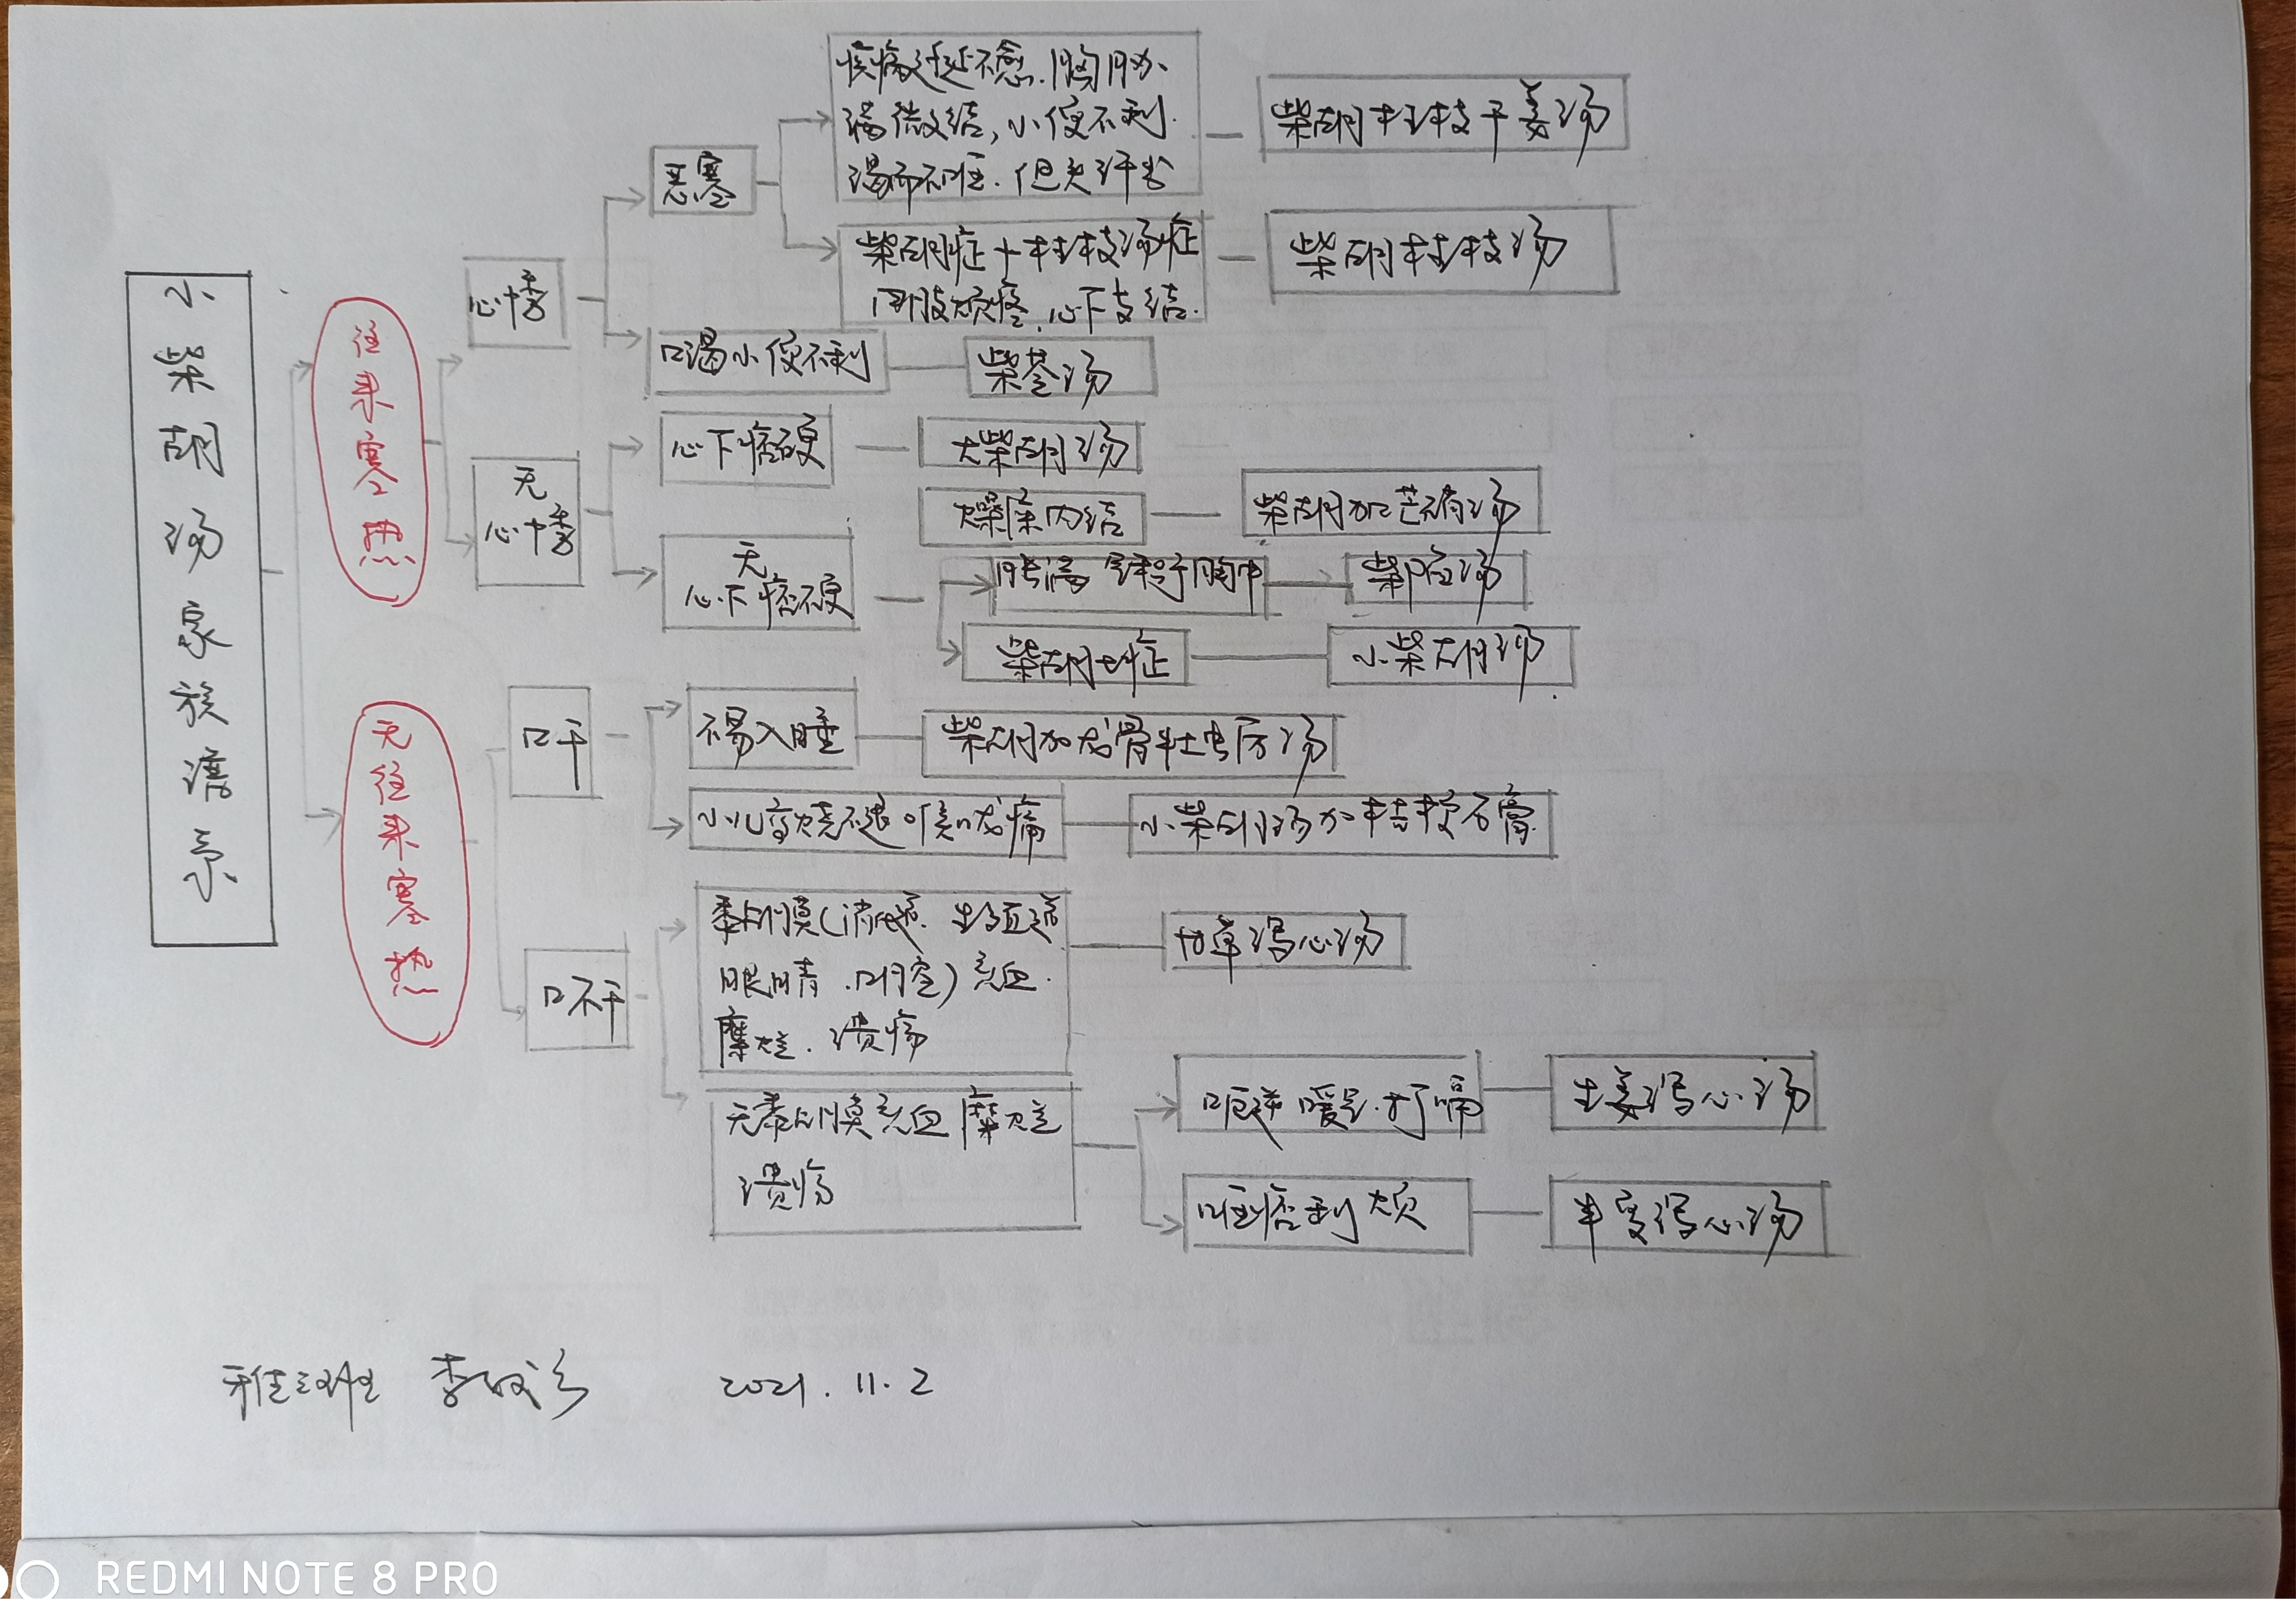 小柴胡汤家族谱系
往来寒热
心悸
恶寒
疾病迁延不愈.胸胁
满微结,小便不利.
渴而不呕.但头汗出
柴胡桂枝干姜汤
柴胡症+桂枝汤症
四肢烦疼.心下支结.
柴胡桂枝汤
口渴小便不利
柴苓汤
无
心悸
心下痞硬
大柴胡汤
无
心下痞硬
燥屎内结
柴胡加芒硝汤
胀满 症于胸中
柴陷汤
柴胡七症
小柴胡汤
无往来寒热
口干
不易入睡
柴胡加龙骨牡蛎汤
小儿高烧不退 喉咙痛
小柴胡汤加桔梗石膏
口不干
黏膜(消化道.生殖道
眼睛.口腔)充血.
糜烂.溃疡
甘草泻心汤
无黏膜充血糜烂
溃疡
呃逆 嗳气.打嗝
生姜泻心汤
呕痞利烦
半夏泻心汤
2021.11.2
REDMI NOTE 8 PRO